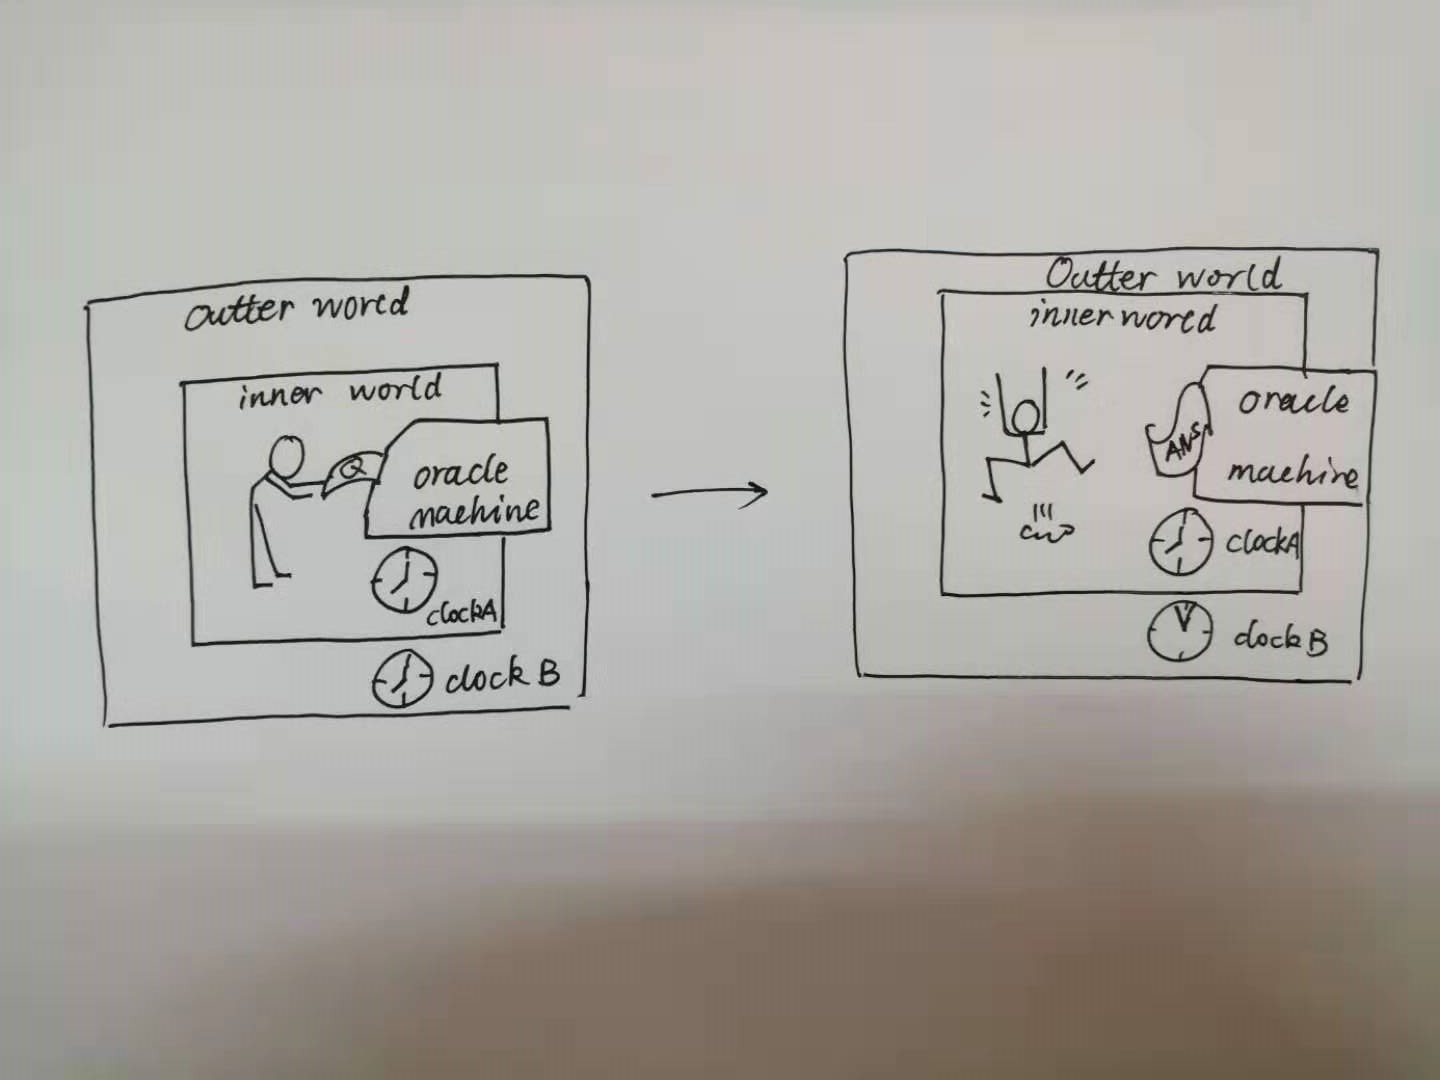 Outter world
inner world
Q
oracle
machine
clockA
clock B
Outter world
inner world
ANS
oracle
machine
clockA
clock B